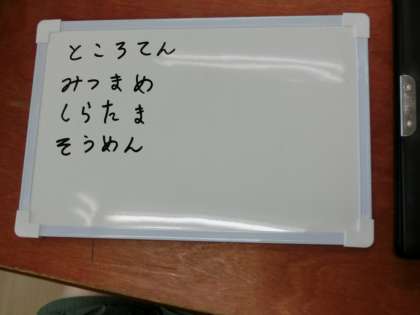 ところてん
みつまめ
しらたま
そうめん